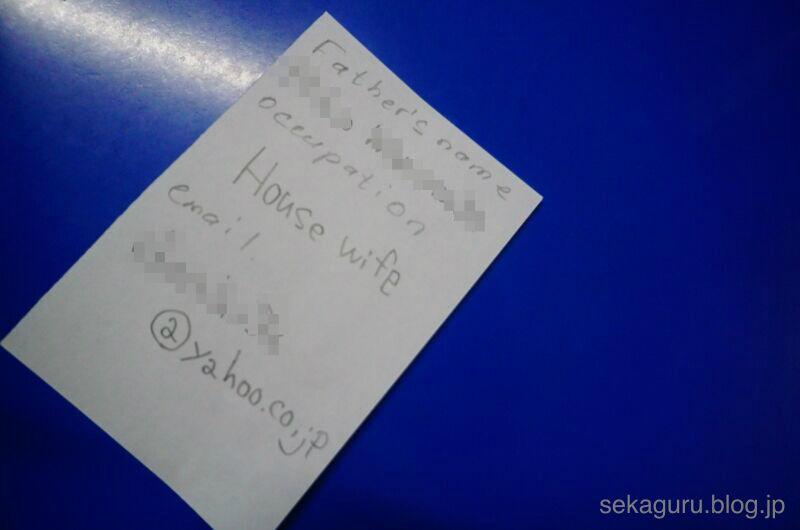 Father's name
occupation
House wife
email
@yahoo.co.jp
sekaguru.blog.jp